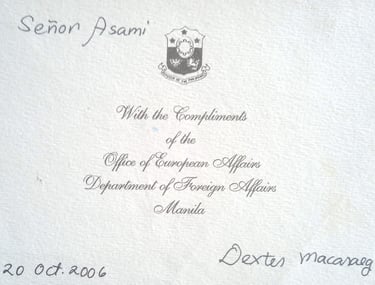 Señor Asami
With the Compliments
of the
Office of European Affairs
Department of Foreign Affairs
Manila
Dexter Macaraeg
20 Oct. 2006